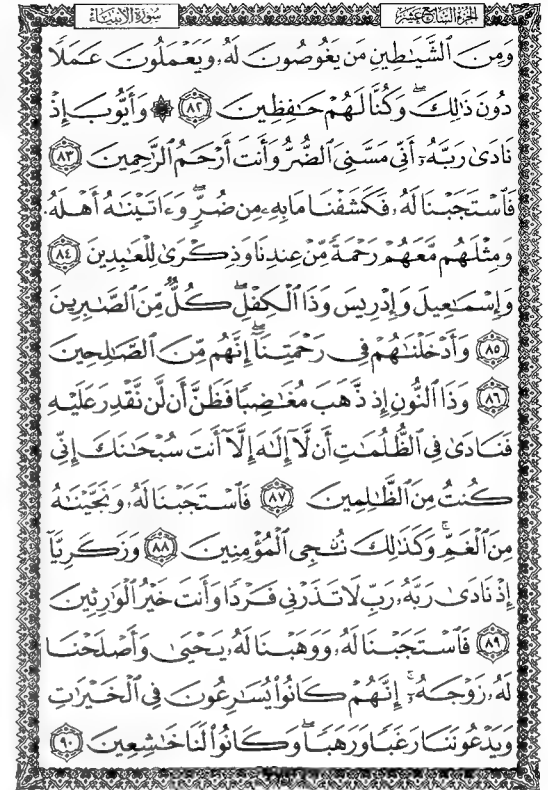 سورة الأنبياء الجزء السابع عشر
وَمِنَ ٱلشَّيَٰطِينِ مَن يَغُوصُونَ لَهُۥ وَيَعْمَلُونَ عَمَلًا
دُونَ ذَٰلِكَ ۖ وَكُنَّا لَهُمْ حَٰفِظِينَ ٨٢ ۞ وَأَيُّوبَ إِذْ
نَادَىٰ رَبَّهُۥٓ أَنِّى مَسَّنِىَ ٱلضُّرُّ وَأَنتَ أَرْحَمُ ٱلرَّٰحِمِينَ ٨٣
فَٱسْتَجَبْنَا لَهُۥ فَكَشَفْنَا مَا بِهِۦ مِن ضُرٍّ ۖ وَءَاتَيْنَٰهُ أَهْلَهُۥ
وَمِثْلَهُم مَّعَهُمْ رَحْمَةً مِّنْ عِندِنَا وَذِكْرَىٰ لِلْعَٰبِدِينَ ٨٤
وَإِسْمَٰعِيلَ وَإِدْرِيسَ وَذَا ٱلْكِفْلِ ۖ كُلٌّ مِّنَ ٱلصَّٰبِرِينَ
٨٥ وَأَدْخَلْنَٰهُمْ فِى رَحْمَتِنَآ ۖ إِنَّهُم مِّنَ ٱلصَّٰلِحِينَ
٨٦ وَذَا ٱلنُّونِ إِذ ذَّهَبَ مُغَٰضِبًا فَظَنَّ أَن لَّن نَّقْدِرَ عَلَيْهِ
فَنَادَىٰ فِى ٱلظُّلُمَٰتِ أَن لَّآ إِلَٰهَ إِلَّآ أَنتَ سُبْحَٰنَكَ إِنِّى
كُنتُ مِنَ ٱلظَّٰلِمِينَ ٨٧ فَٱسْتَجَبْنَا لَهُۥ وَنَجَّيْنَٰهُ
مِنَ ٱلْغَمِّ ۚ وَكَذَٰلِكَ نُۨجِى ٱلْمُؤْمِنِينَ ٨٨ وَزَكَرِيَّآ
إِذْ نَادَىٰ رَبَّهُۥ رَبِّ لَا تَذَرْنِى فَرْدًا وَأَنتَ خَيْرُ ٱلْوَٰرِثِينَ
٨٩ فَٱسْتَجَبْنَا لَهُۥ وَوَهَبْنَا لَهُۥ يَحْيَىٰ وَأَصْلَحْنَا
لَهُۥ زَوْجَهُۥٓ ۚ إِنَّهُمْ كَانُوا۟ يُسَٰرِعُونَ فِى ٱلْخَيْرَٰتِ
وَيَدْعُونَنَا رَغَبًا وَرَهَبًا ۖ وَكَانُوا۟ لَنَا خَٰشِعِينَ ٩٠